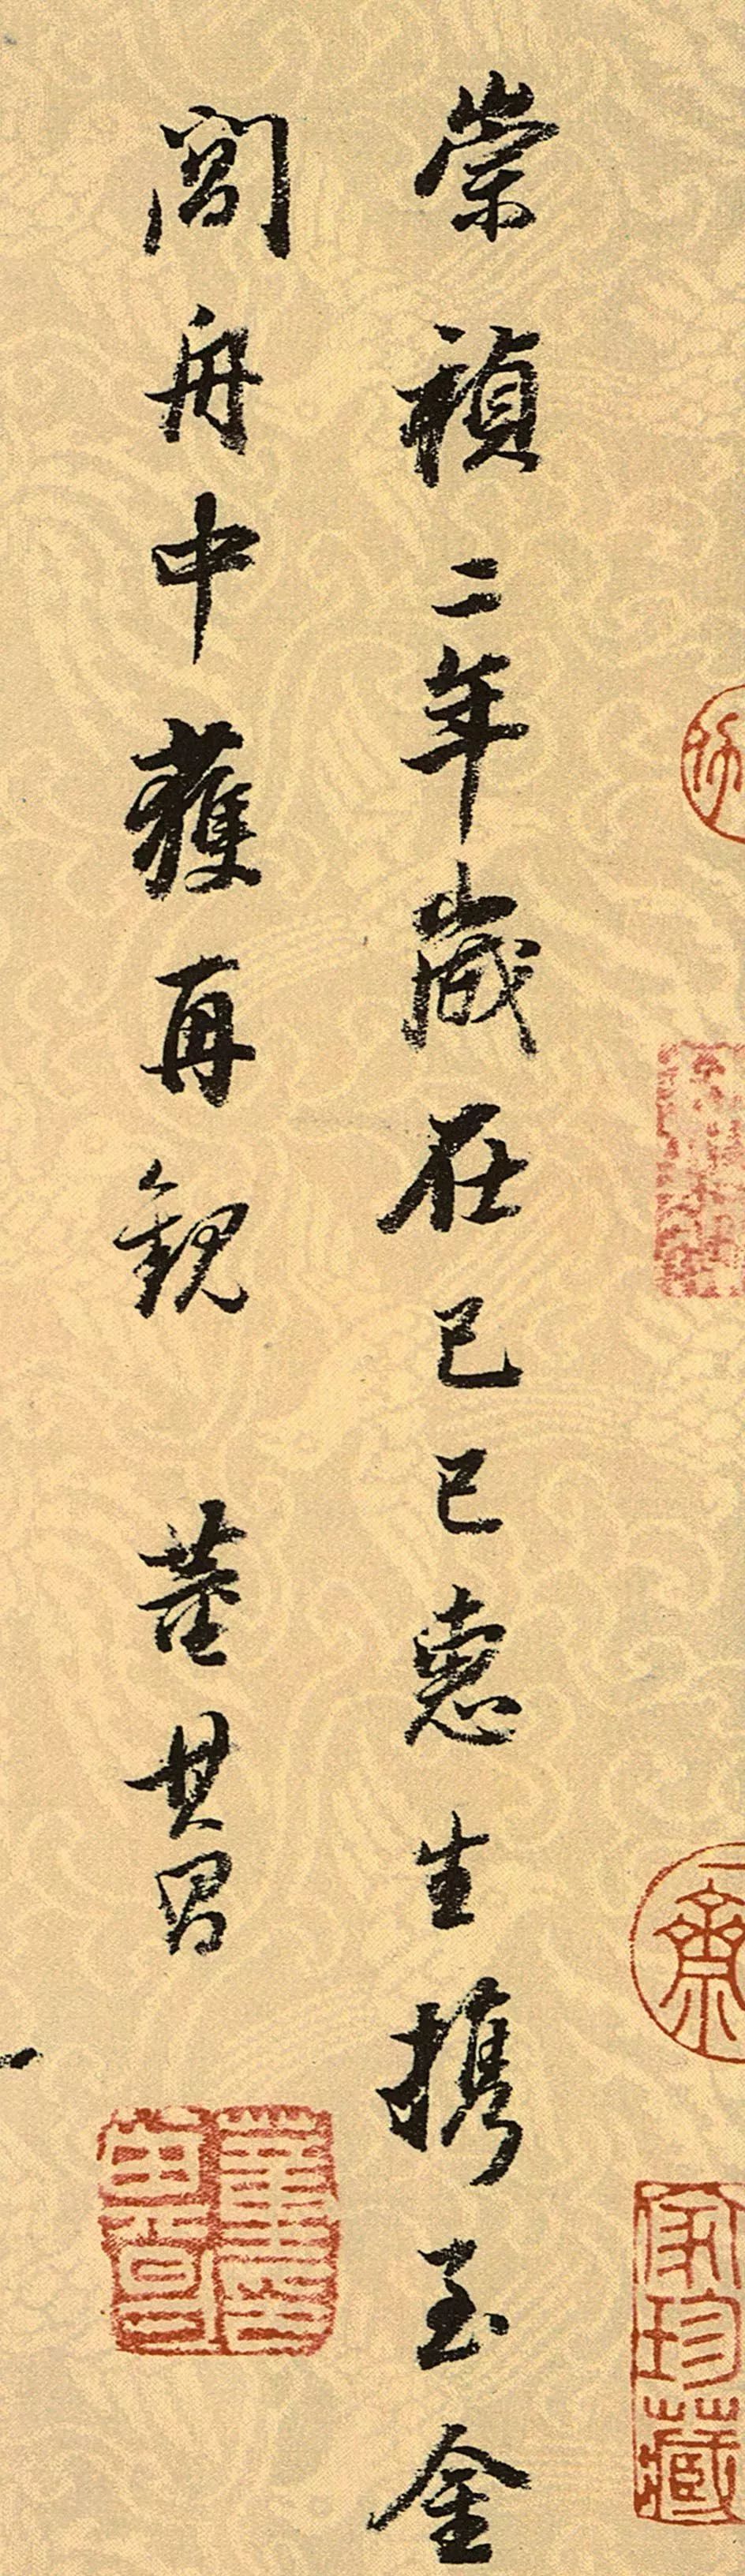 崇禎二年歲在己巳惠生攜至金
閶舟中獲再觀 董其昌
家珍藏